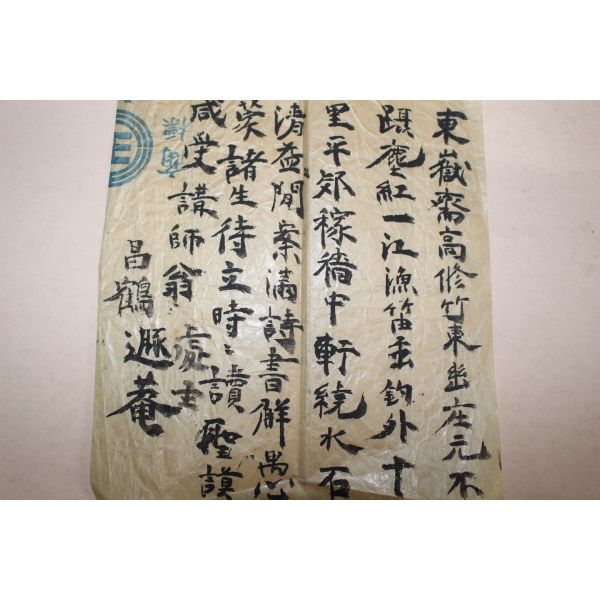 東嶽齋高修竹東幽庄元不
躡塵紅一江漁笛垂釣外十
里平郊稼穡中軒繞水石
清益閒案滿詩書解愚心
蒙諸生侍立時〻讀聖謨
咸受講師翁 處士
昌鶴 遯菴